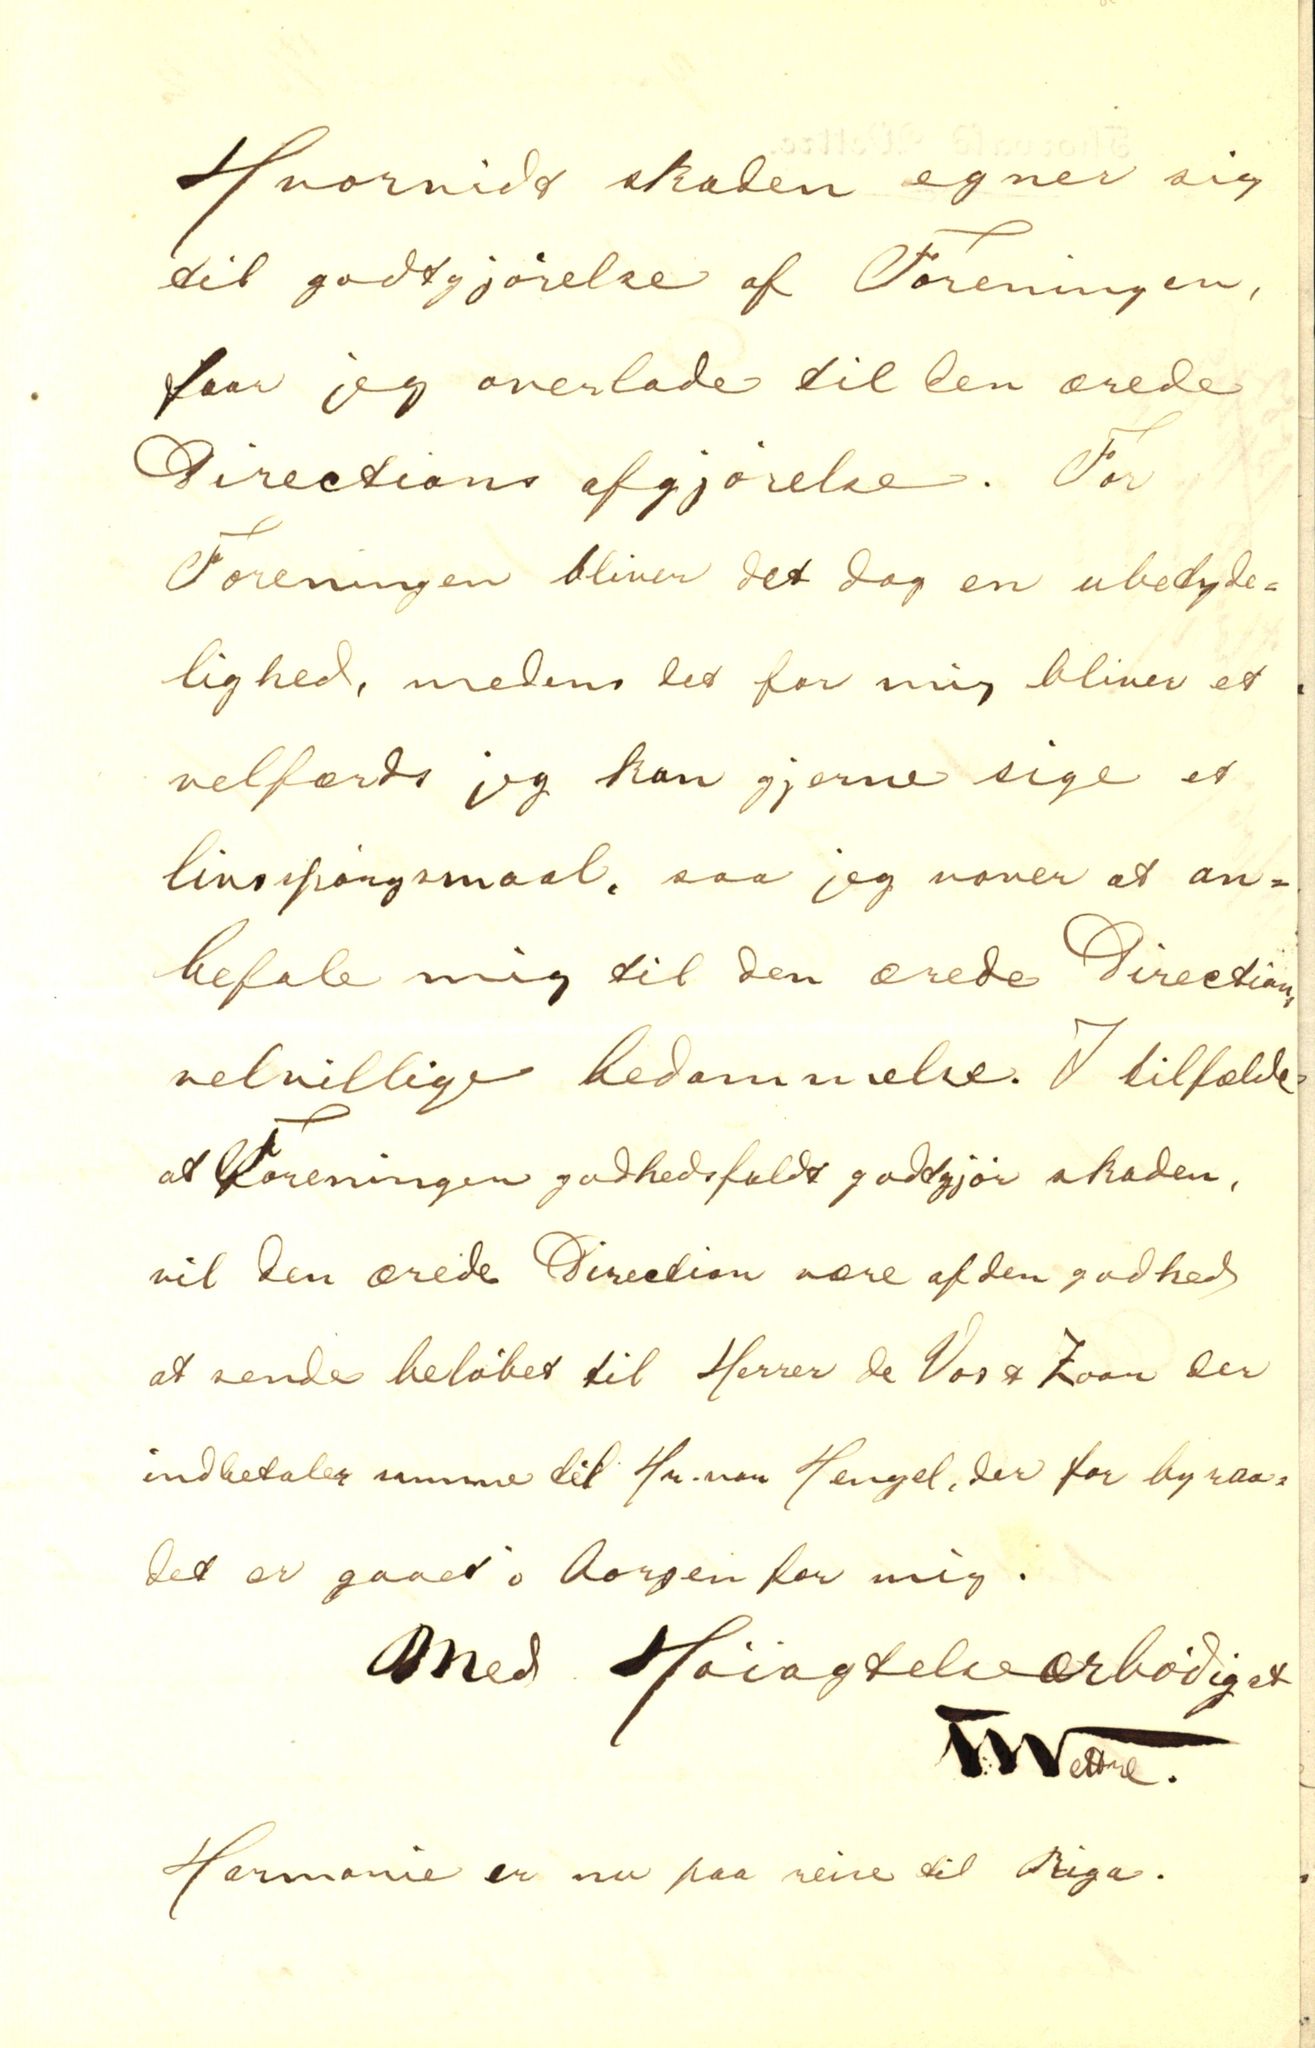 Hvorvidt skaden egner sig
til godtgjörelse af Foreningen,
faar jeg overlade til den ærede
Directions afgjörelse. For
Foreningen bliver det dog en ubetyde=
lighed, medens det for mig bliver et
velfærds jeg kan gjerne sige et
livsspörgsmaal, saa jeg vover at an=
befale mig til den ærede Directions
velvillige bedømmelse. I tilfælde
at Foreningen godhedsfuldt godtgjör skaden,
vil den ærede Direction være af den godhed
at sende belöbet til Herrer de Vos & Zoon der
indbetaler summe til Hr. van Hengel, der for byraa=
det er gaaet i borgen for mig.
Med Höiagtelse ærbödigst
T Wettre.
Harmonie er nu paa reise til Riga.